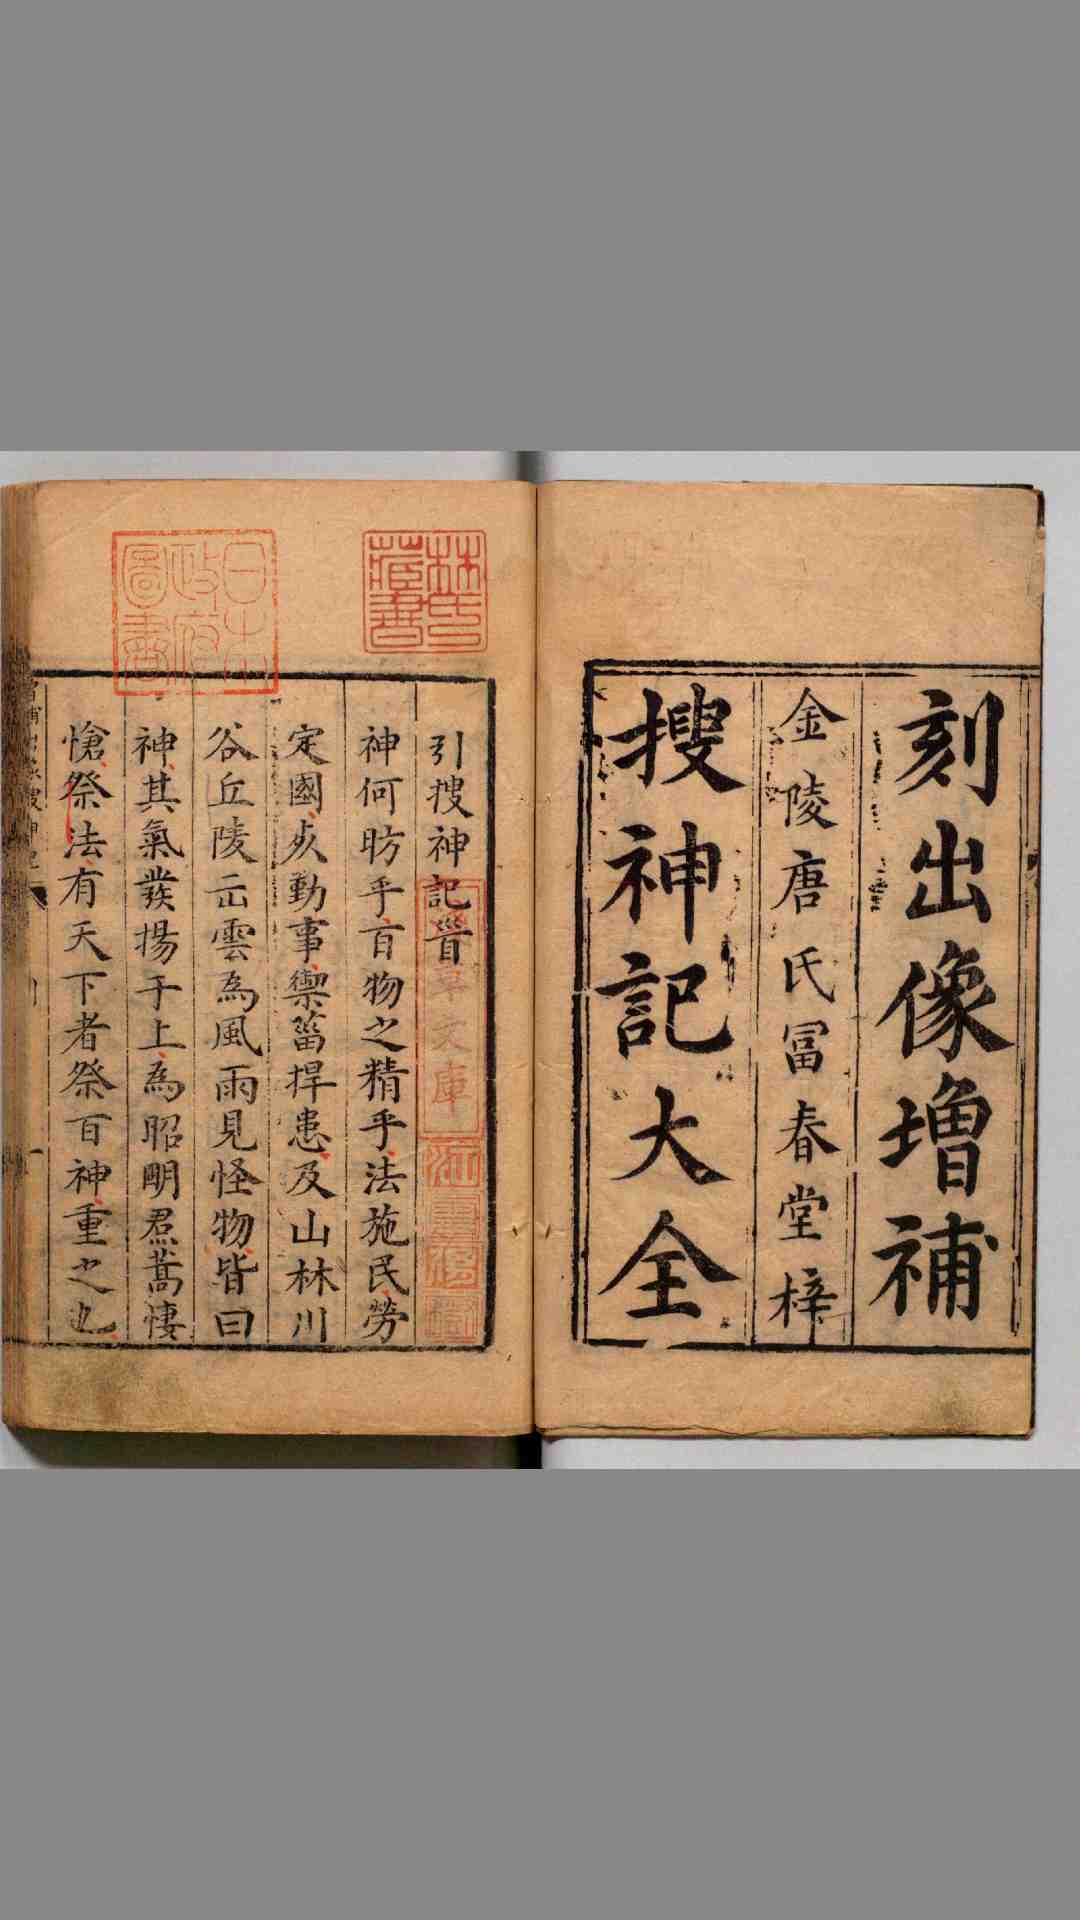 刻出像増補
金陵唐氏冨春堂梓
搜神記大全
林氏藏書
日本政府圖書
引搜神記𩠐
神何昉乎百物之精乎法施民勞
定國㱥勤事禦菑捍患及山林川
谷丘陵出雲為風雨見怪物皆曰
神其氣發揚于上為昭明焄蒿悽
愴祭法有天下者祭百神重之也